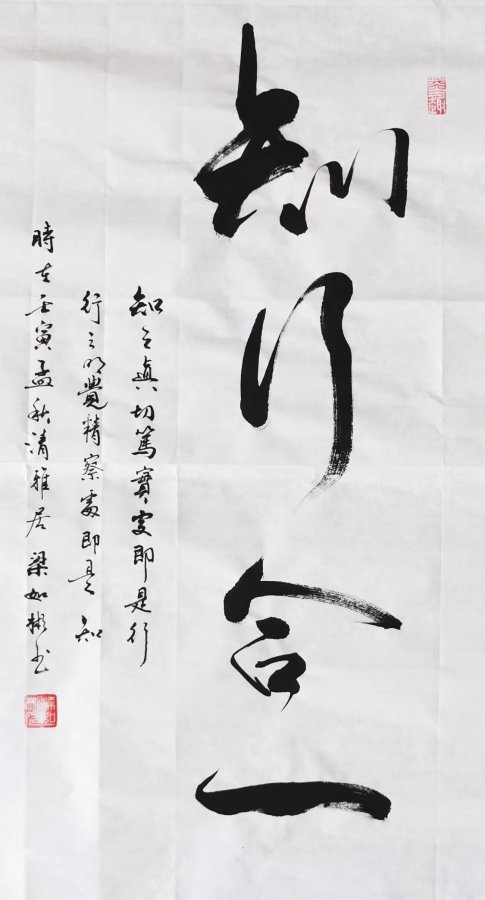 知行合一
知之真切篤實處即是行
行之明覺精察處即是知
時在壬寅孟秋清雅居梁如彬书